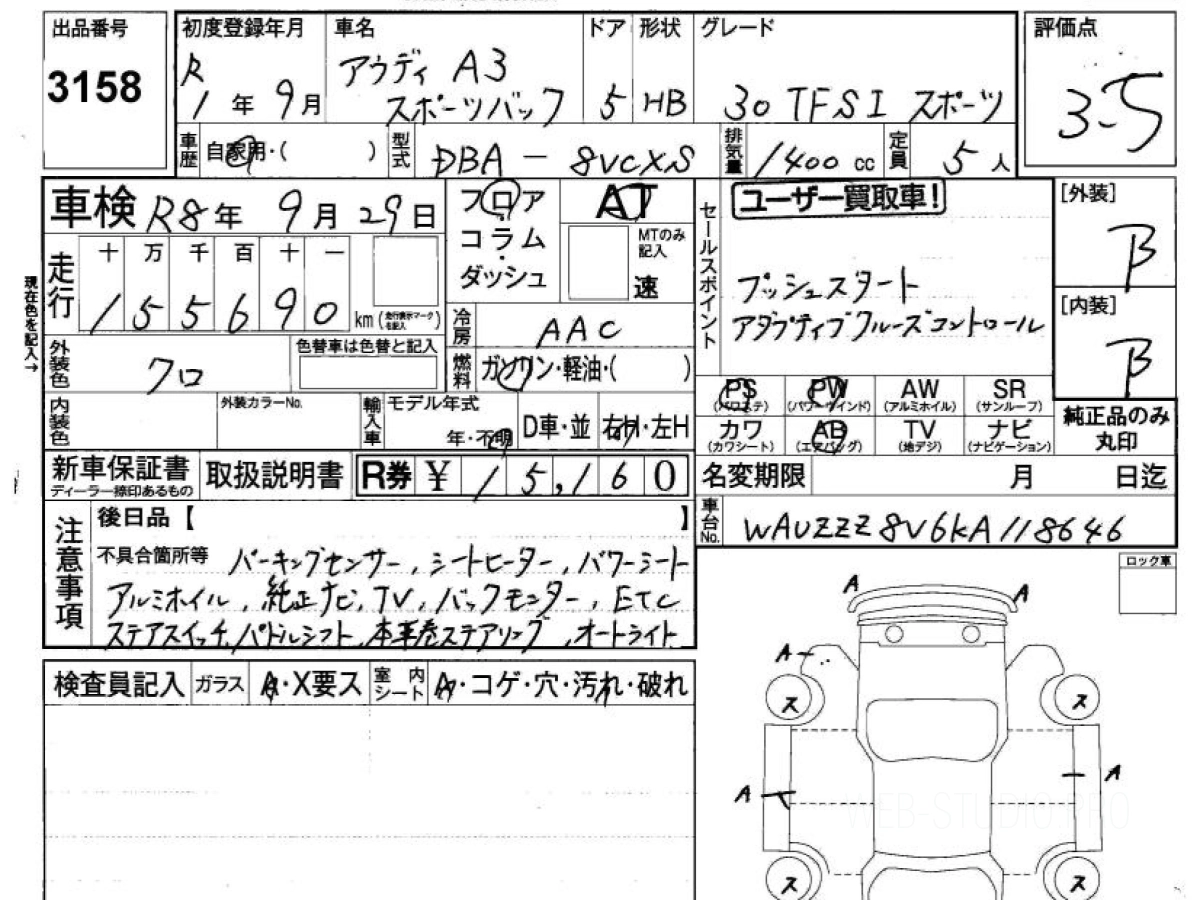 出品番号 初度登録年月 車名 ドア 形状 グレード 評価点
3158 R1年9月 アウディ A3 スポーツバック 5 HB 30 TFSI スポーツ 3.5
車歴 自家用・( ) 型式 DBA - 8VCXS 排気量 1400 cc 定員 5人
車検 R8年 9月 29日 フロア AT セールスポイント ユーザー買取車! [外装]
コラム MTのみ記入 B
走行 十 万 千 百 十 一 ダッシュ 速 プッシュスタート [内装]
現在色を記入→ 155690 km (走行表示マークを記入) 冷房 AAC アダプティブクルーズコントロール B
外装色 クロ 色替車は色替と記入 燃料 ガソリン・軽油・( )
PS (パワステ) PW (パワーウインド) AW (アルミホイル) SR (サンルーフ)
内装色 外装カラーNo. 輸入車 モデル年式 年・不明 D車・並 右H・左H カワ (カワシート) AB (エアバッグ) TV (地デジ) ナビ (ナビゲーション) 純正品のみ丸印
新車保証書 ディーラー捺印あるもの 取扱説明書 R券 ¥ 15,160 名変期限 月 日迄
注意事項 後日品【 】 車台No. WAUZZZ8V6KA118646
不具合箇所等 パーキングセンサー, シートヒーター, パワーシート
アルミホイル, 純正ナビ, TV, バックモニター, ETC
ステアスイッチ, パドルシフト, 本革巻ステアリング, オートライト
検査員記入 ガラス A・X要ス 室内シート A・コゲ・穴・汚れ・破れ
ロック車
A A
A
ス ス
A A
WEB-STUDIO.PRO
ス ス